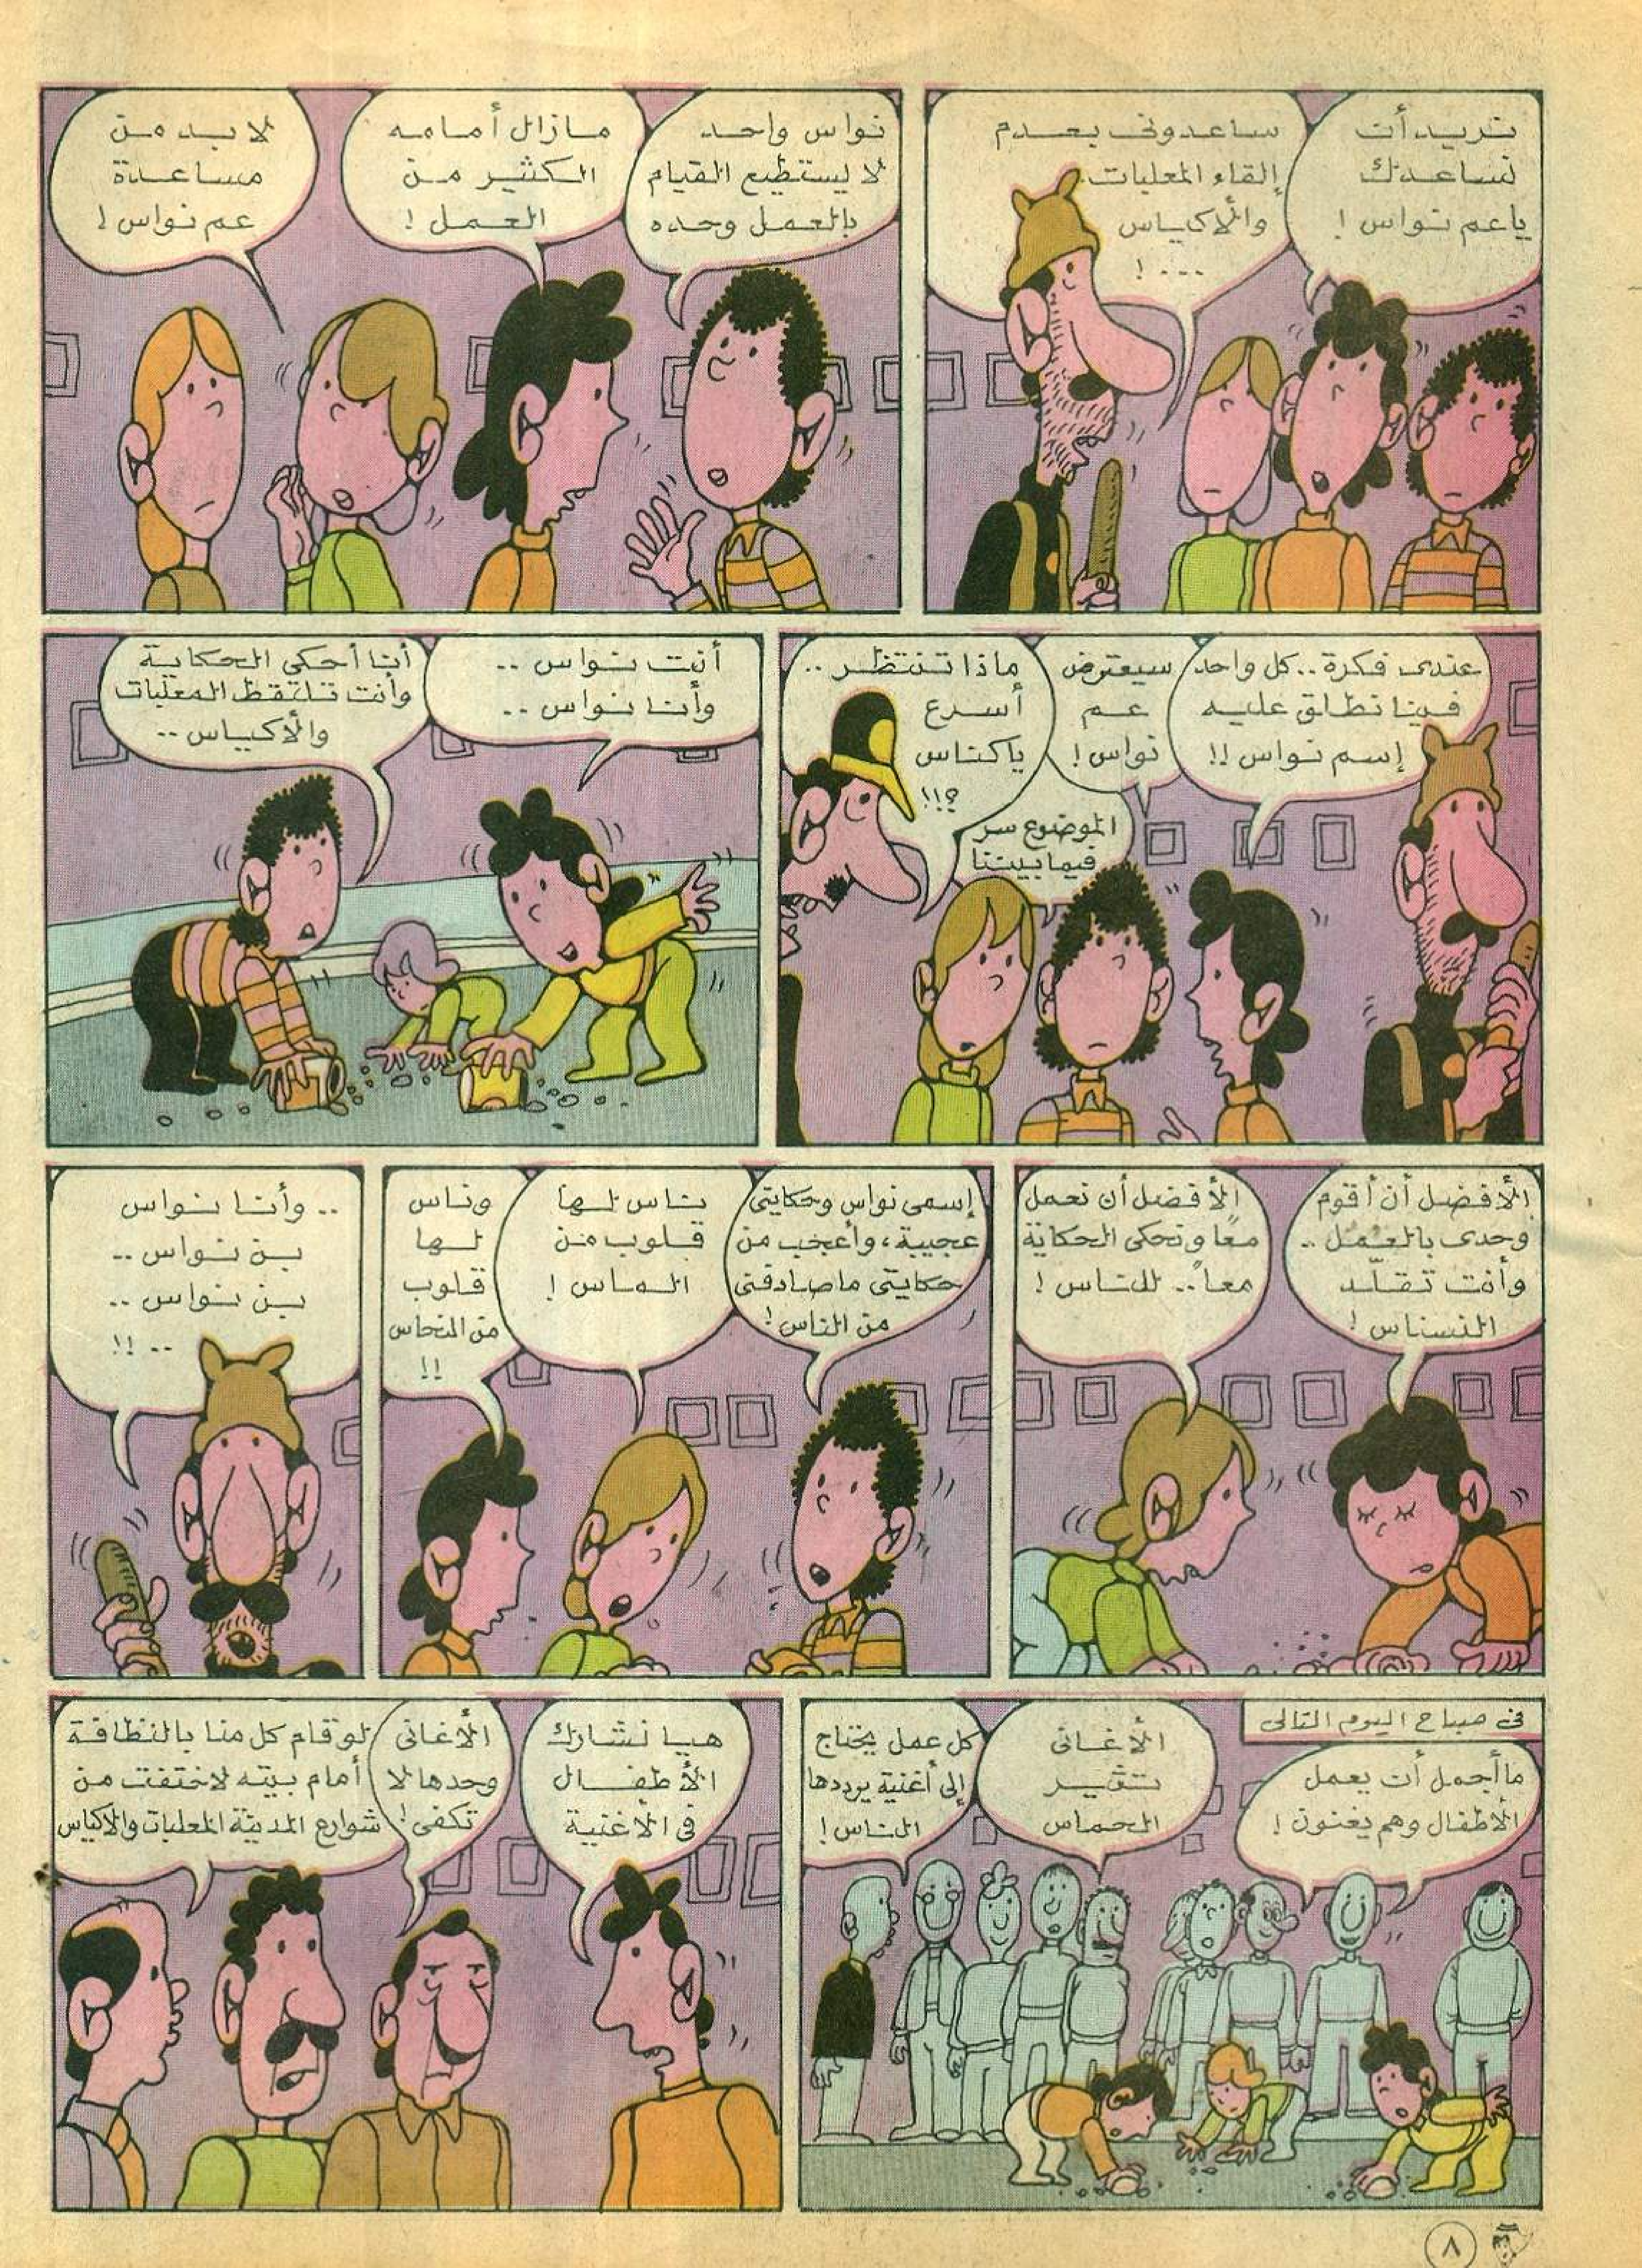 نريد أن
نساعدك
يا عم نواس !
ساعدوني بعدم
إلقاء المعلبات
والأكياس
... !
نواس واحد
لا يستطيع القيام
بالعمل وحده
مازال أمامه
الكثير من
العمل !
لا بد من
مساعدة
عم نواس !
عندى فكرة .. كل واحد
فينا نطلق عليه
إسم نواس !!
سيعترض
عم
نواس !
الموضوع سر
فيما بيننا
ماذا تنتظر ..
أسرع
يا كناس
؟!!
أنت نواس ..
وأنا نواس ..
أنا أحكي الحكاية
وأنت تلتقط المعلبات
والأكياس ..
الأفضل أن أقوم
وحدى بالعمل ..
وأنت تقلّد
النسناس !
الأفضل أن نعمل
معًا ونحكي الحكاية
معاً .. للناس !
إسمى نواس وحكايتى
عجيبة، وأعجب من
حكايتى ما صادفنى
من الناس !
ناس لها
قلوب من
الماس !
وناس
لها
قلوب
من النحاس
!!
.. وأنا نواس
بن نواس ..
بن نواس ..
.. !!
فى صباح اليوم التالى
ما أجمل أن يعمل
الأطفال وهم يغنون !
الأغانى
تثير
الحماس
كل عمل يحتاج
إلى أغنية يرددها
الناس !
هيا نشارك
الأطفال
فى الأغنية
الأغانى
وحدها لا
تكفى !
لو قام كل منا بالنظافة
أمام بيته لاختفت من
شوارع المدينة المعلبات والاكياس
٨